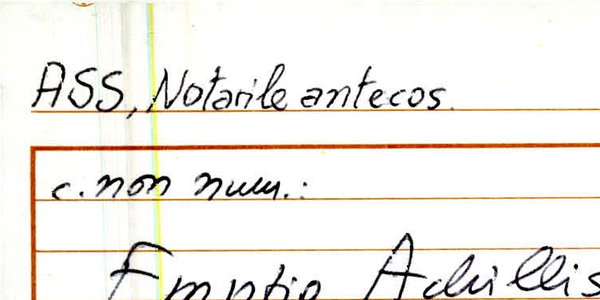 ASS, Notarile antecos.
c. non num.:
Emptio Achillis